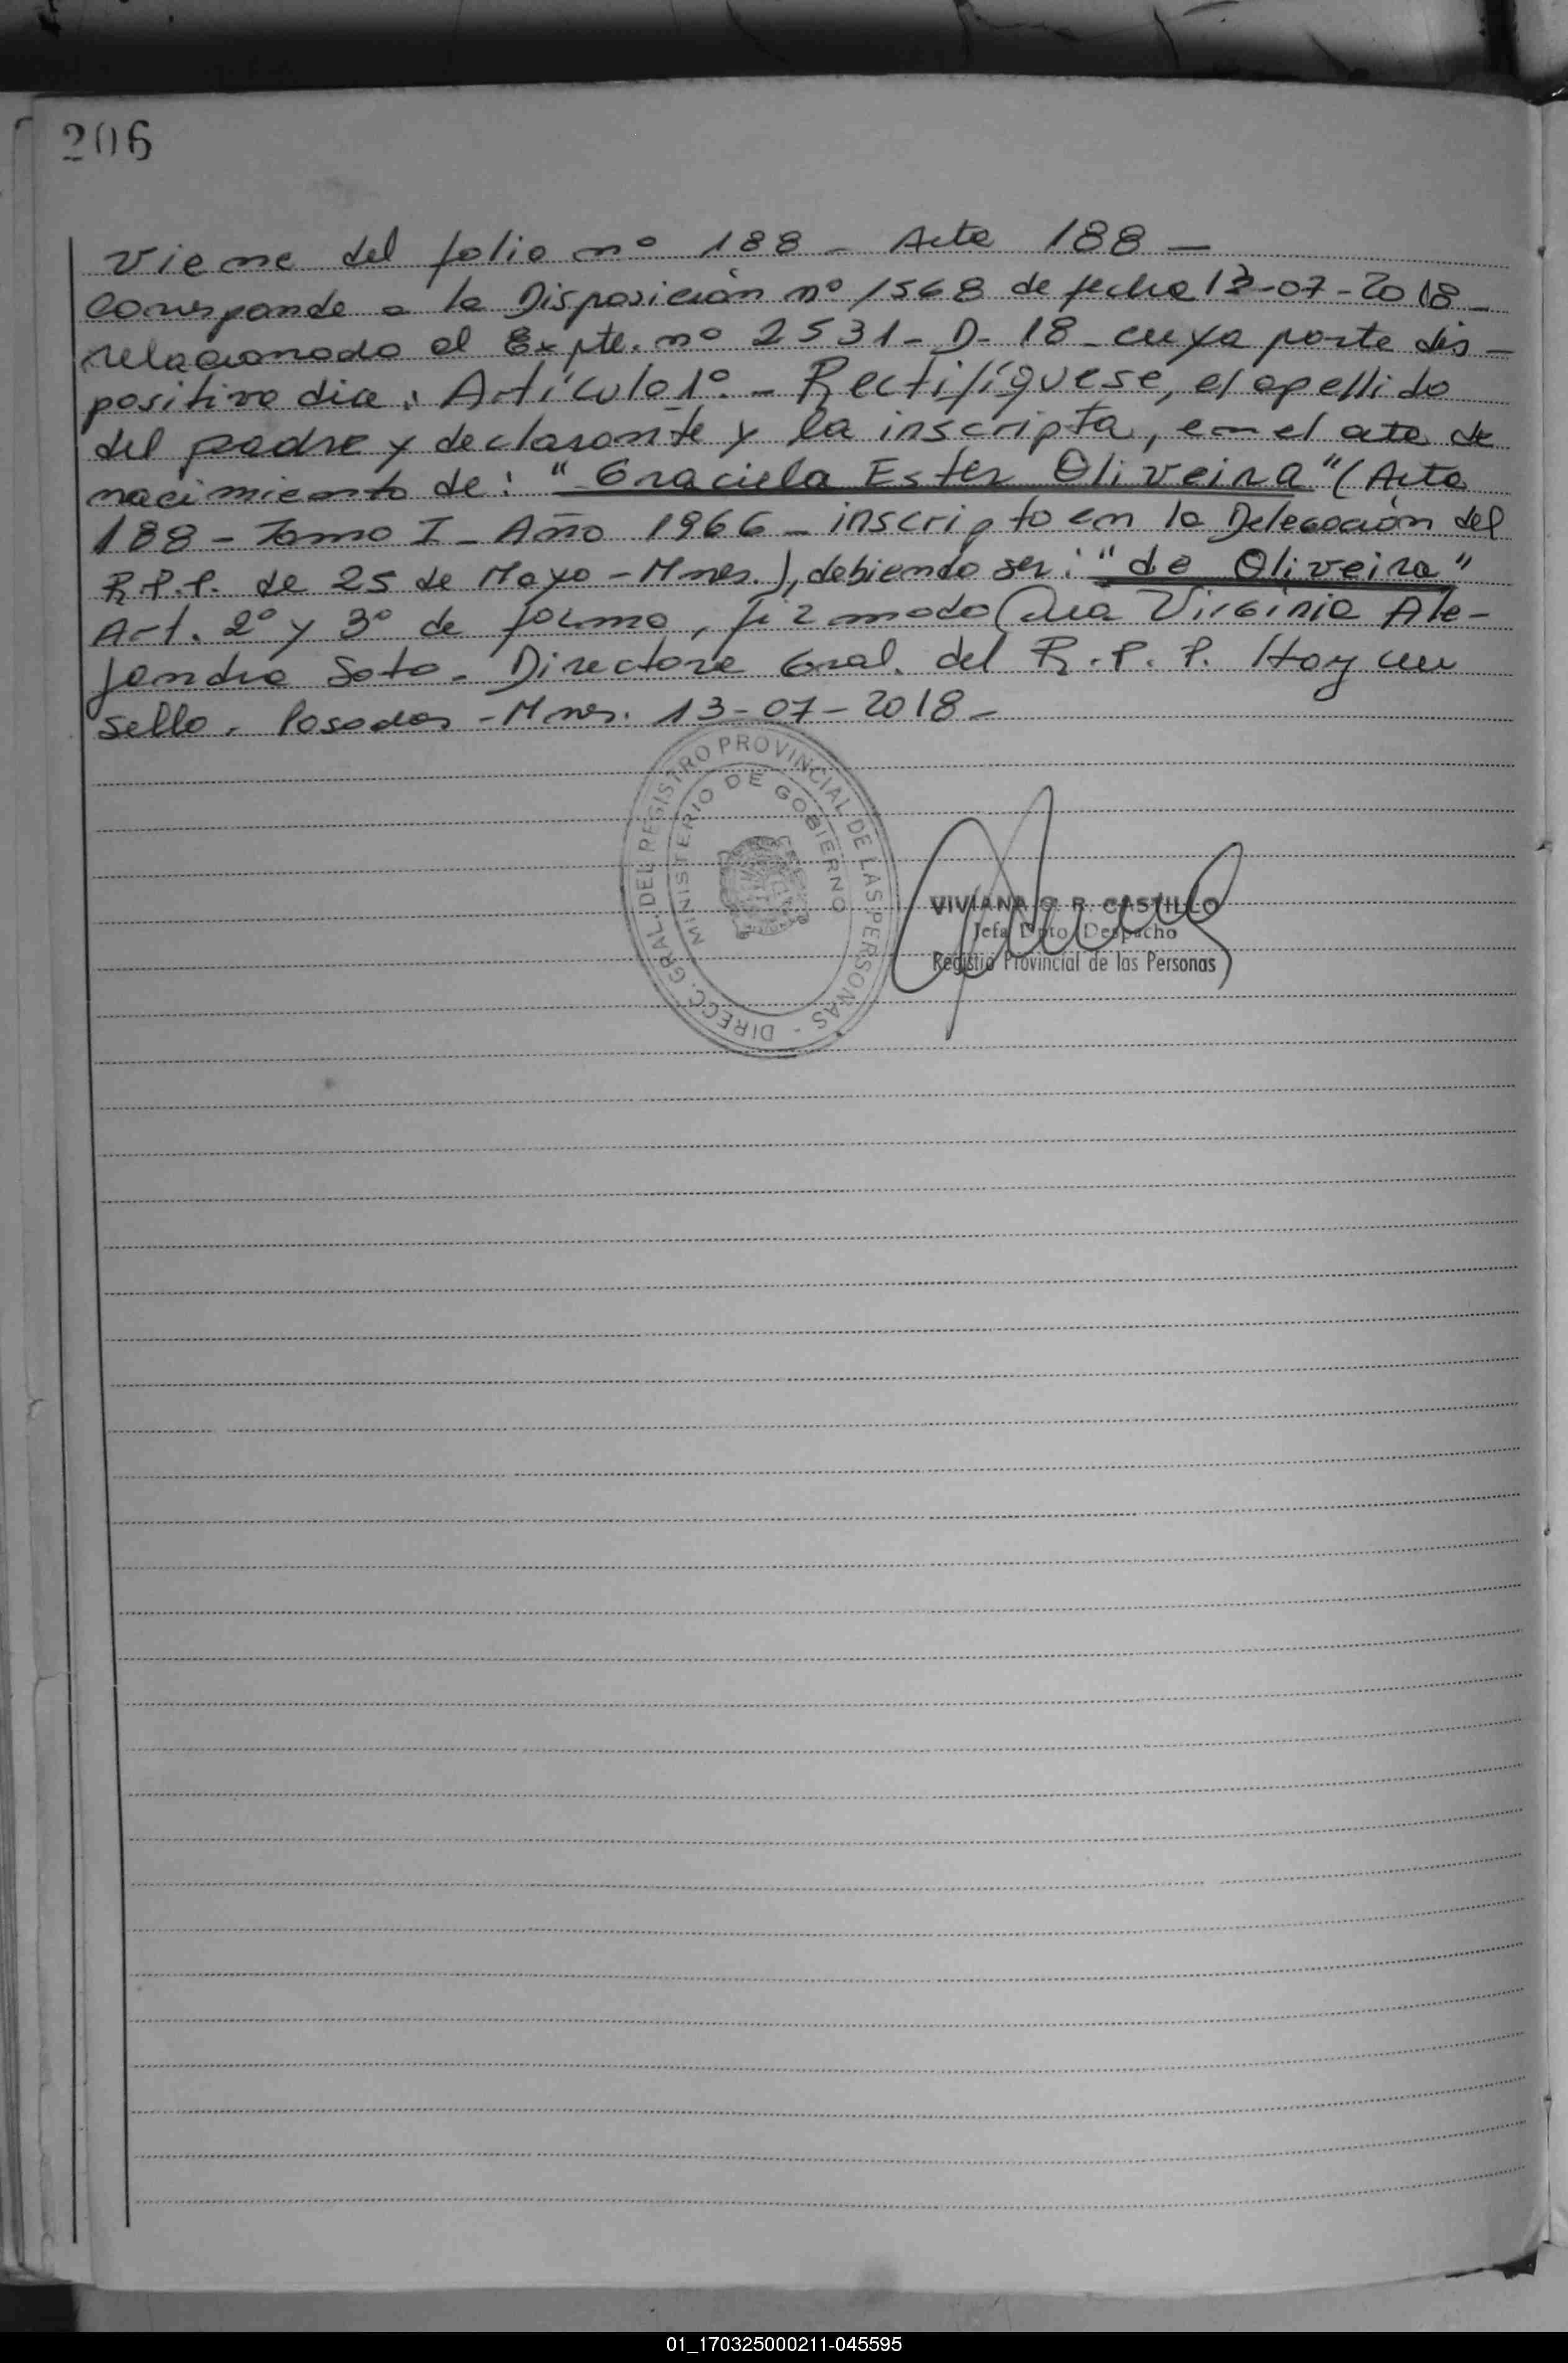 206
Viene del folio nº 188 - Acta 188 -
Corresponde a la Disposición nº 1568 de fecha 13-07-2018-
relacionado al Expte. nº 2531-D-18-cuya parte dis-
positiva dice: Artículo 1º.- Rectifíquese, el apellido
del padre y declarante y la inscripta, en el acta de
nacimiento de: "Graciela Ester Oliveira" (Acta
188 - Tomo I - Año 1966 - inscripto en la Delegación del
R.P.P. de 25 de Mayo - Mnes.), debiendo ser: "de Oliveira"
Art. 2º y 3º de forma, firmado Dra Virginia Ale-
jandra Soto. Directora Gral. del R.P.P. Hay un
sello. Posadas - Mnes. 13-07-2018-
DIRECC. GRAL. DEL REGISTRO PROVINCIAL DE LAS PERSONAS -
MINISTERIO DE GOBIERNO
VIVIANA R. CASTILLO
Jefa Dpto Despacho
Registro Provincial de las Personas
01_170325000211-045595